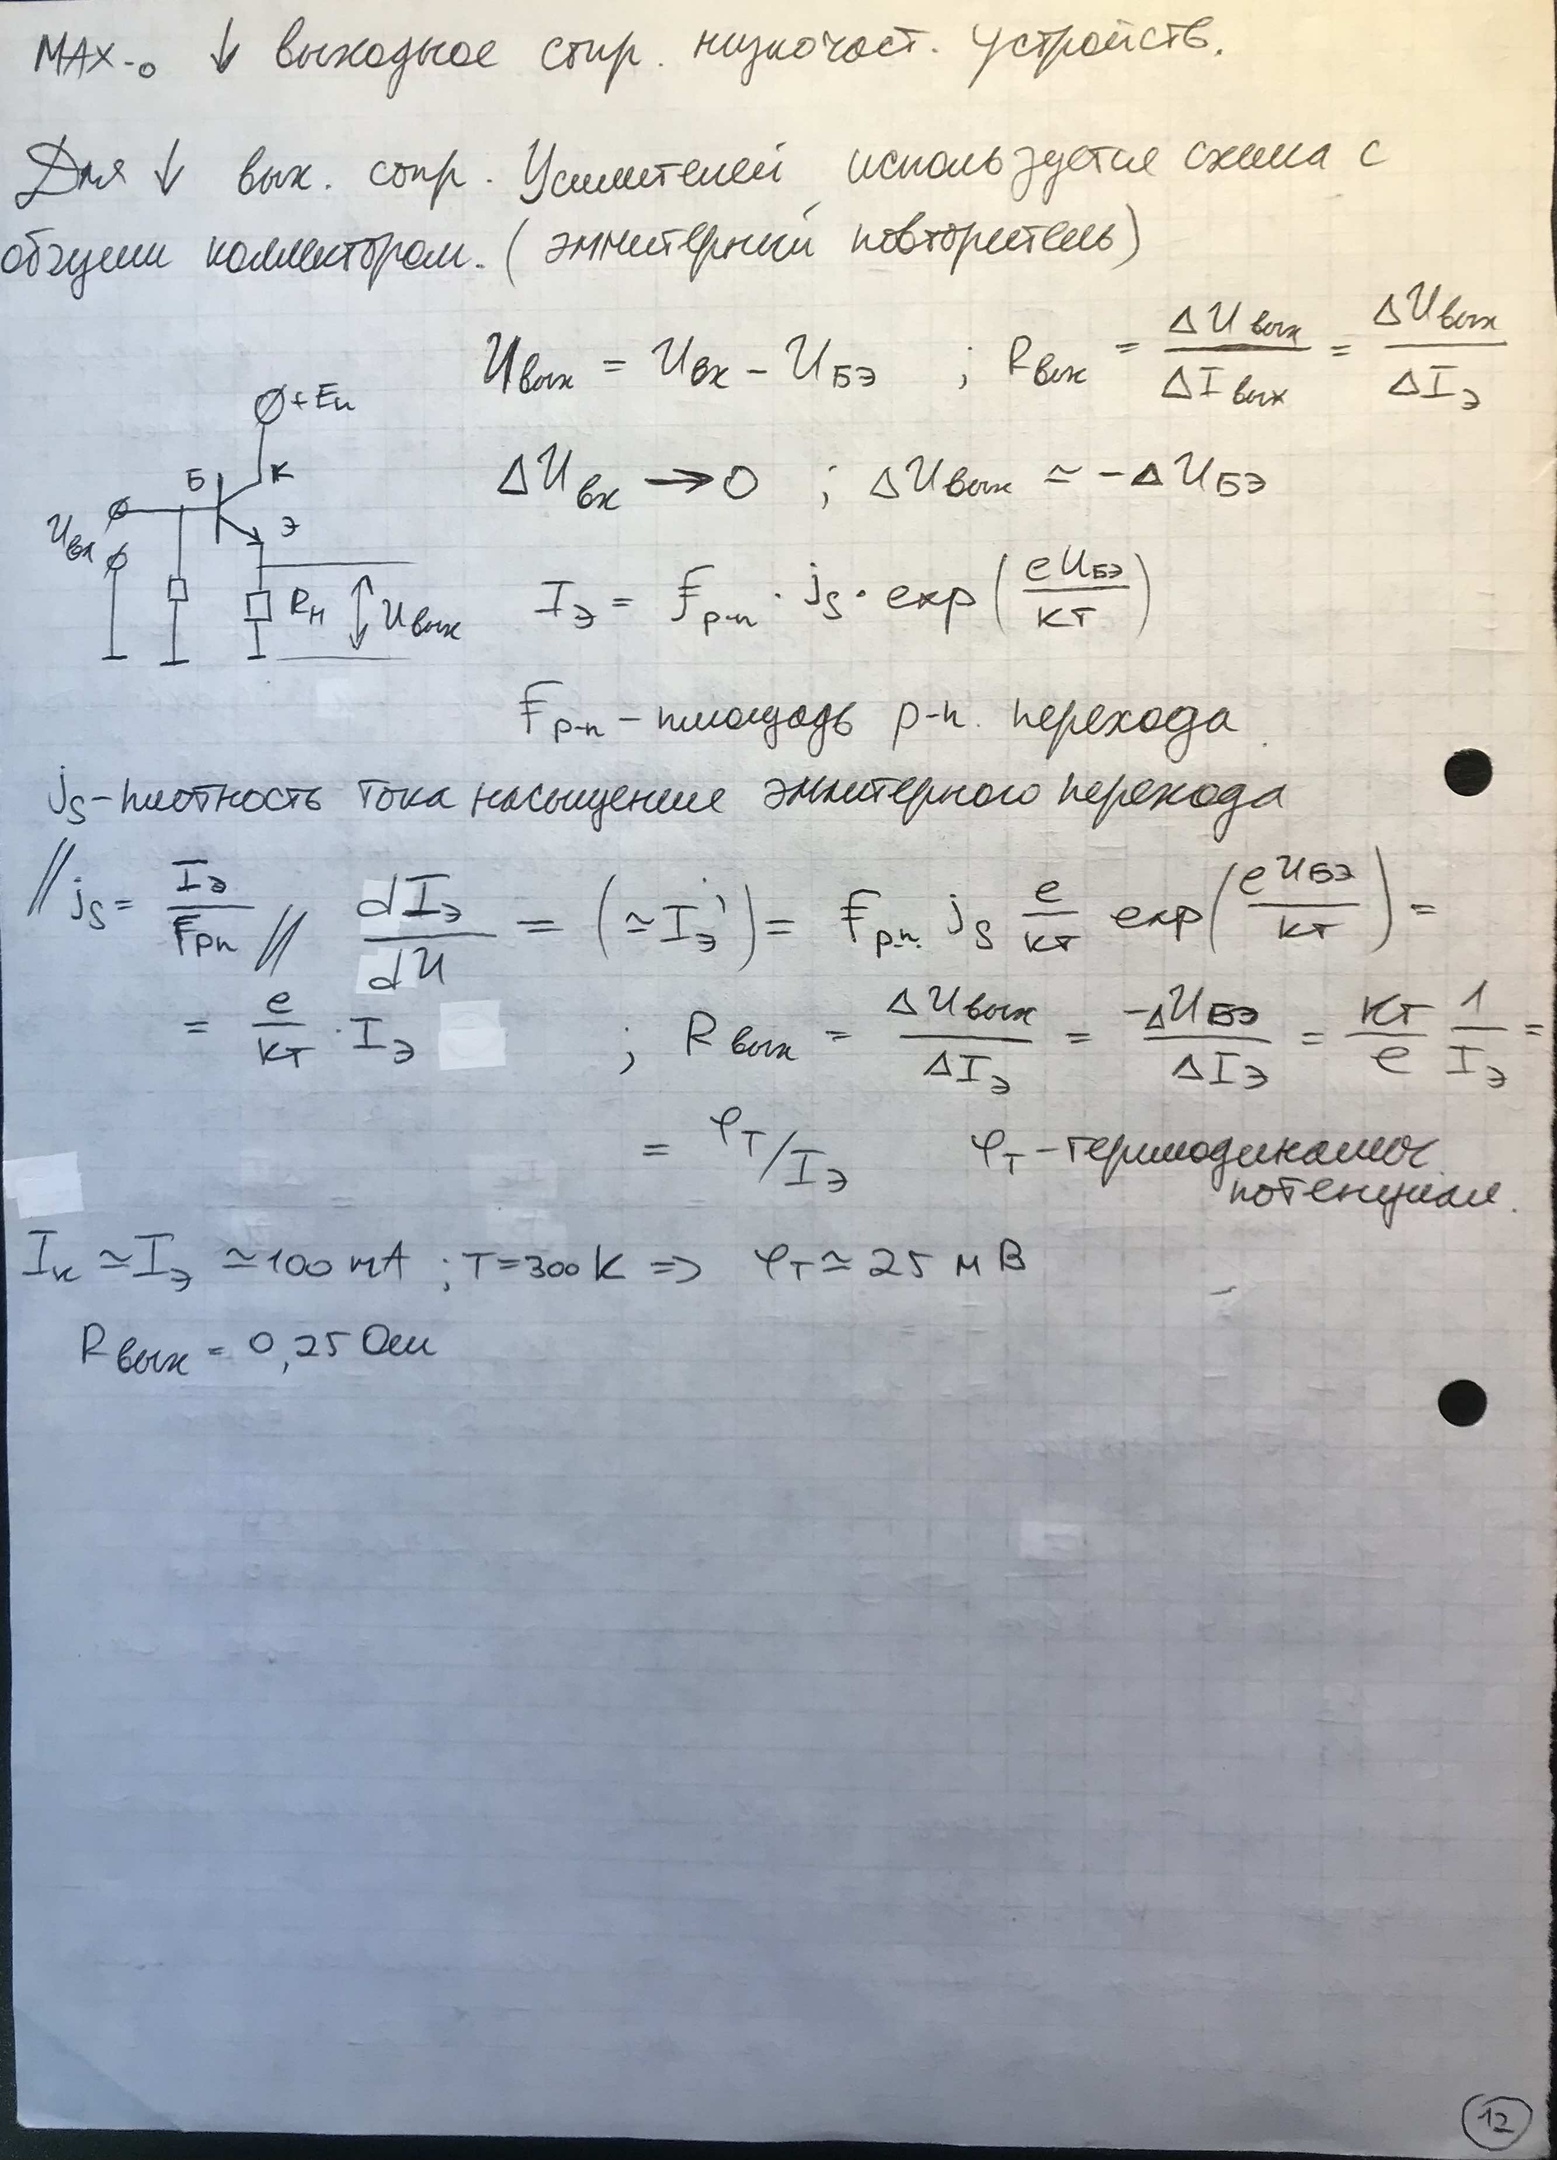 MAX-о ↓ выходное сопр. низкочаст. устройств.
Для ↓ вых. сопр. Усилителей используется схема с
общим коллектором. (эммитерный повторитель)
Uвых = Uвх - UБЭ ; Rвых = ΔUвых/ΔIвых = ΔUвых/ΔIэ
+Eп
Б К Э
Uвх
Rн Uвых
ΔUвх → 0 ; ΔUвых ≃ -ΔUБЭ
Iэ = Fp-n · js · exp(eUБЭ/кТ)
Fp-n - площадь p-n. перехода
js - плотность тока насыщение эммитерного перехода
// js = Iэ/Fpn // dIэ/dU = (≃ Iэ') = Fp-n. js e/кТ exp(eUБЭ/кТ) =
= e/кТ · Iэ ; Rвых = ΔUвых/ΔIэ = -ΔUБЭ/ΔIэ = кТ/e 1/Iэ =
= φT/Iэ φT - термодинамич.
потенциал.
Iк ≃ Iэ ≃ 100 mA ; T=300K => φT ≃ 25 мВ
Rвых = 0,25 Ом
12